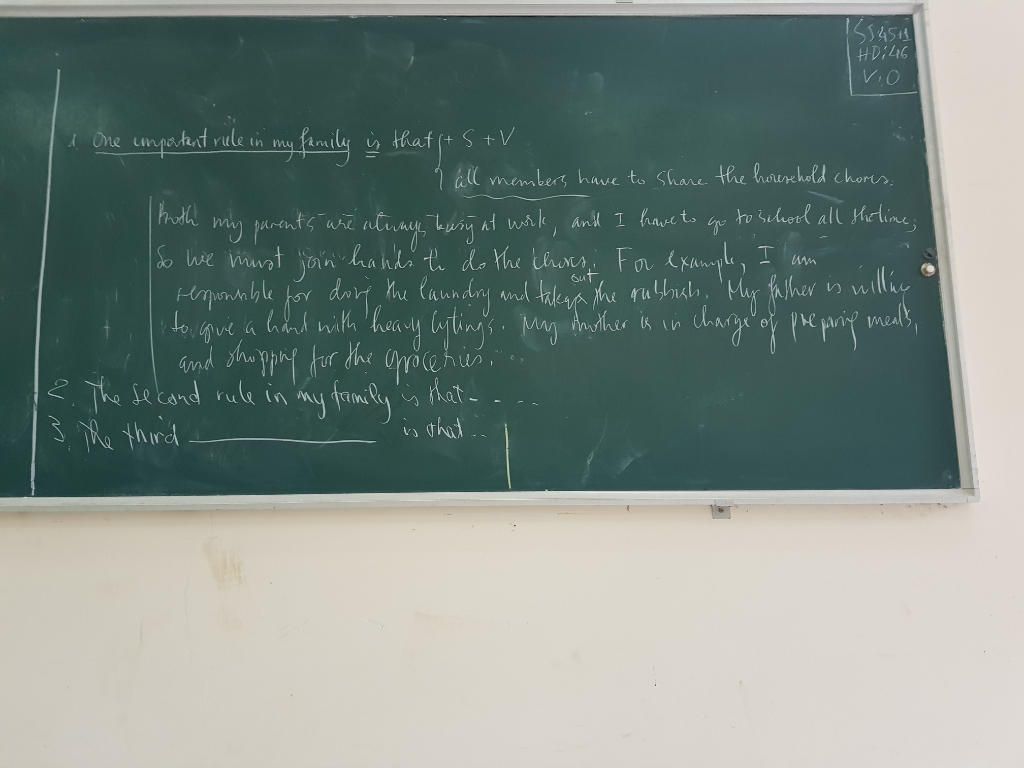 SS: 45+1
HD: 46
V: 0
1. One important rule in my family is that + S + V
all members have to share the household chores.
Both my parents are always busy at work, and I have to go to school all the time,
So we must join hands to do the chores. For example, I am
out
responsible for doing the laundry and taking the rubbish. My father is willing
to give a hand with heavy lifting. My mother is in charge of preparing meals,
and shopping for the groceries...
2. The second rule in my family is that - - - - -
3. The third ________ is that ..